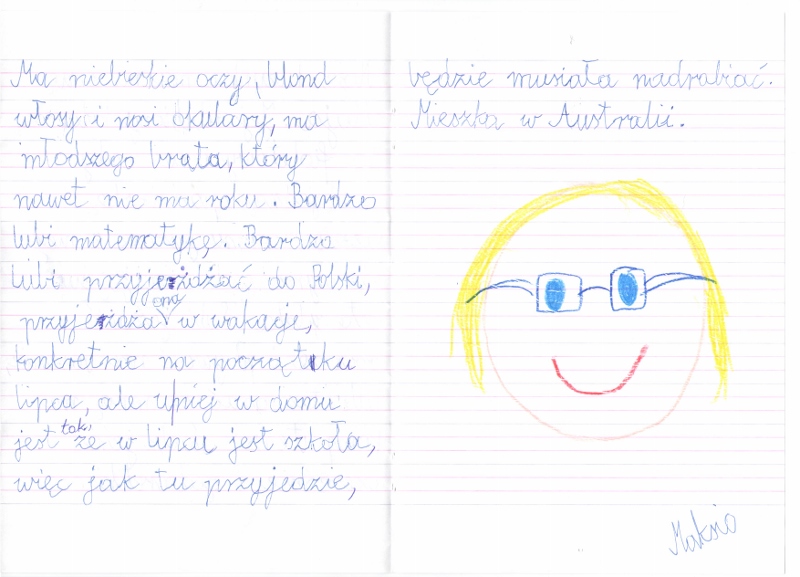 Ma niebieskie oczy, blond
włosy i nosi okulary, ma
młodszego brata, który
nawet nie ma roku. Bardzo
lubi matematykę. Bardzo
lubi przyjeżdżać do Polski,
przyjeżdża ona w wakacje,
konkretnie na początku
lipca, ale u niej w domu
jest tak, że w lipcu jest szkoła,
więc jak tu przyjedzie,
będzie musiała nadrabiać.
Mieszka w Australii.
Maksio